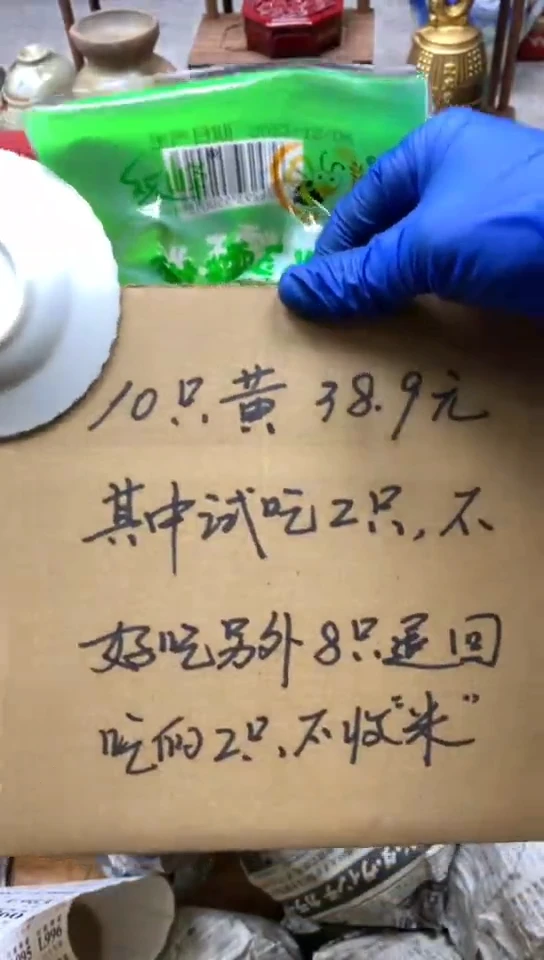 10只黄 38.9元
其中试吃2只,不
好吃另外8只退回
吃的2只,不收“米”